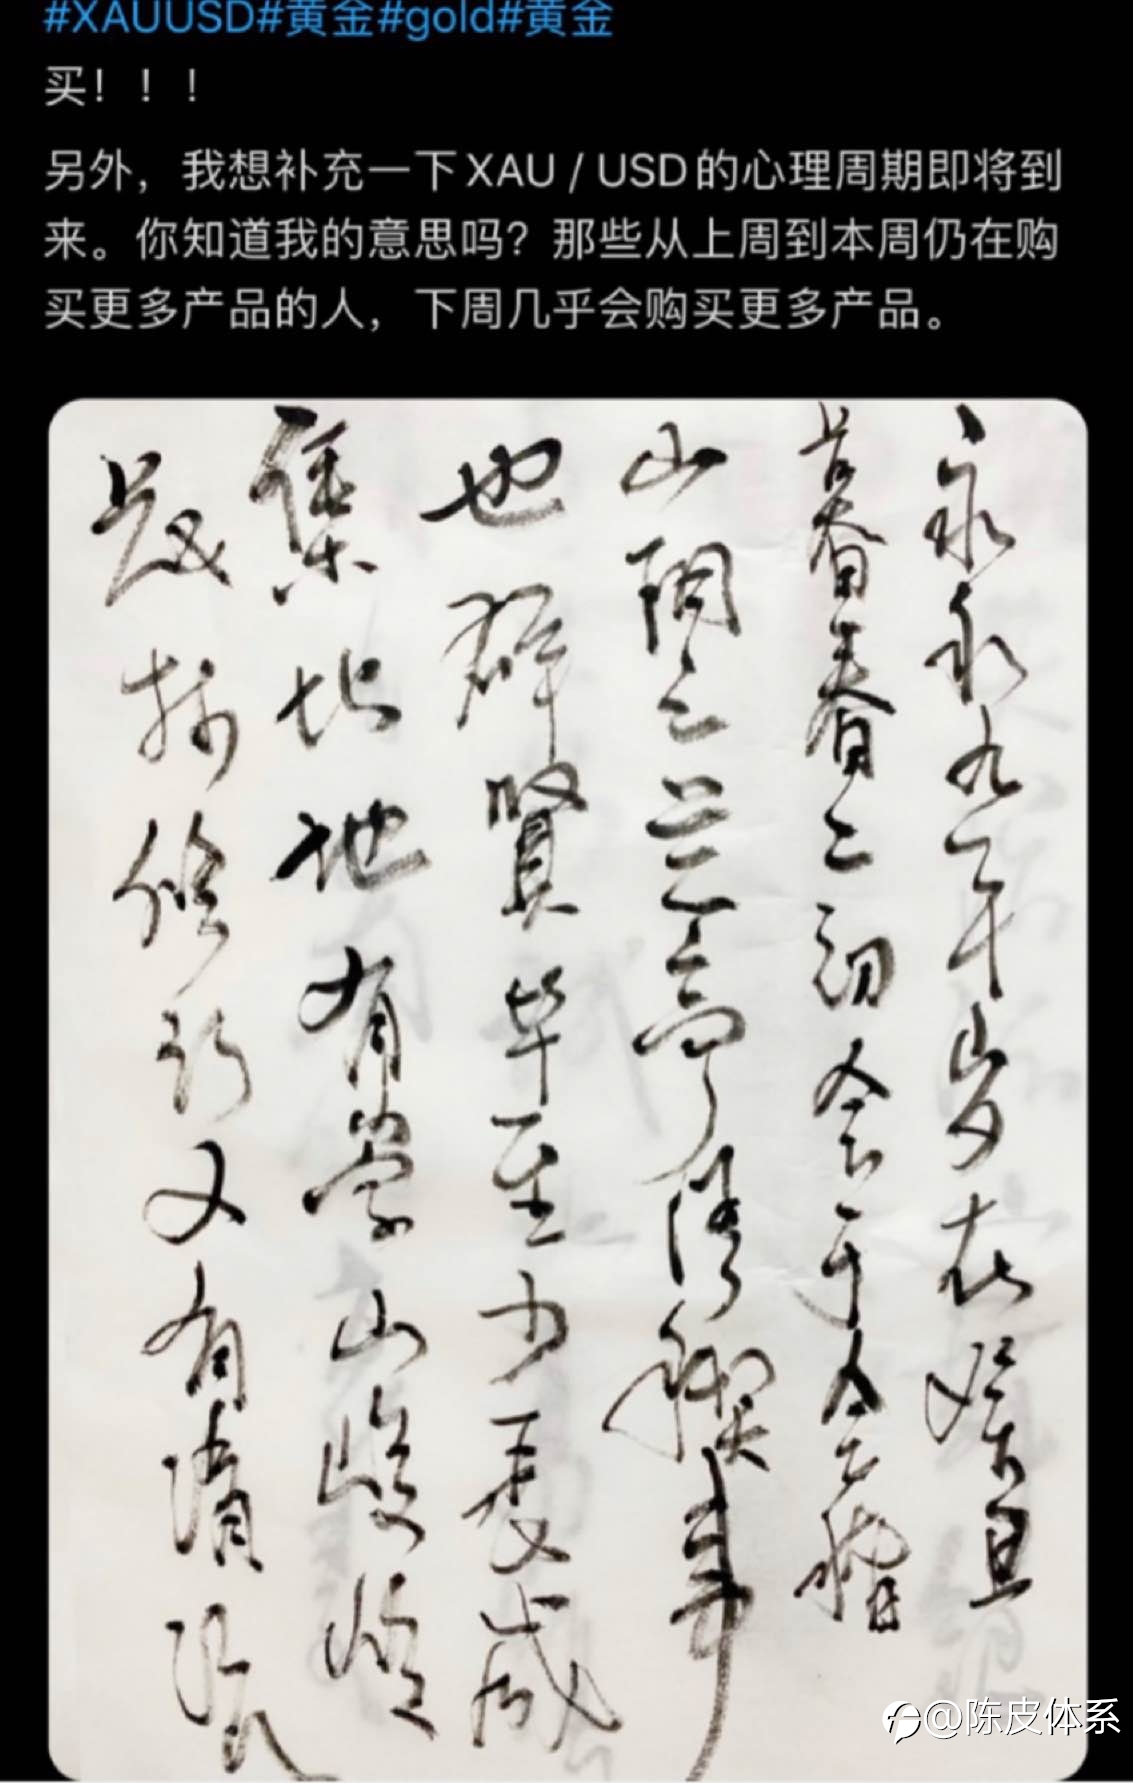 #XAUUSD#黄金#gold#黄金
买！！！
另外，我想补充一下XAU / USD的心理周期即将到
来。你知道我的意思吗？那些从上周到本周仍在购
买更多产品的人，下周几乎会购买更多产品。
永永九年岁在
暮春春之初会于会稽
山阴之兰亭修禊事
也群贤毕至少长咸
集此地有崇山峻岭
修竹又有清流
@陈皮体系